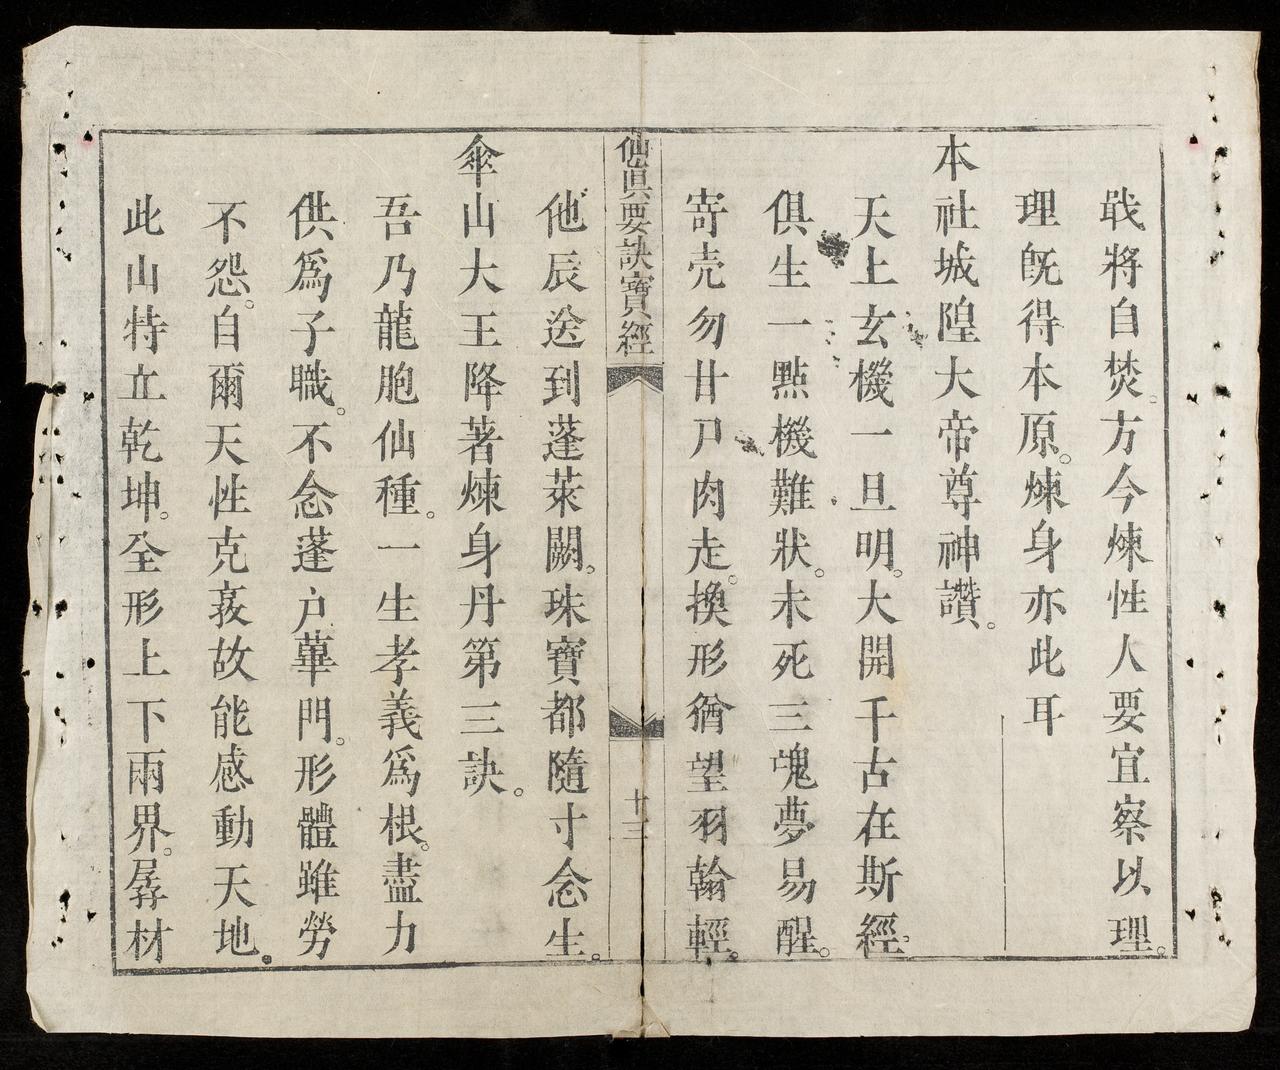 戝將自焚。方今煉性人要宜察以理。
理既得本原。煉身亦此耳
本社城隍大帝尊神讚。
天上玄機一旦明。大開千古在斯經。
俱生一點機難狀。未死三魂夢易醒。
寄壳勿甘尸肉走。換形猶望羽翰輕。
仙眞要訣寶經
十三
他辰送到蓬萊闕。珠寶都隨寸念生。
傘山大王降著煉身丹第三訣。
吾乃龍胞仙種。一生孝義爲根。盡力
供爲子職。不念蓬户蓽門。形體雖勞
不怨。自爾天性克敦故能感動天地。
此山特立乾坤。全形上下兩界。孱材